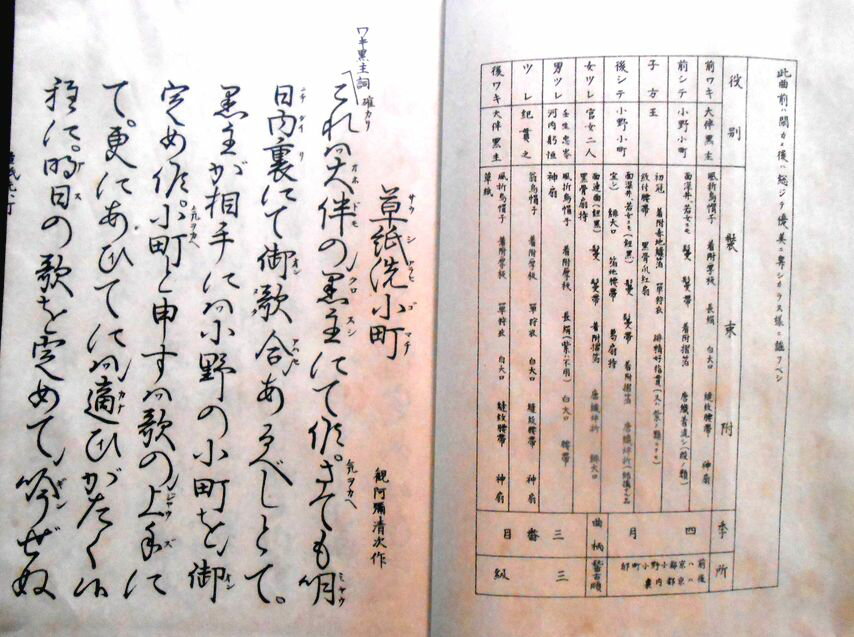 此曲前ハ閑カニ後ハ総ジテ優美ニ
役別 装束附 季 所
前ワキ 大伴黒主 風折烏帽子 着附厚板 長絹 白大口 縫紋腰帯 神扇
前シテ 小野小町 面深井、若女ニモ 鬘 鬘帯 着附摺箔 唐織着流シ
子方 王 初冠 着附赤地縫箔 単狩衣 縫紋腰帯
後シテ 小野小町 面深井、若女ニモ 鬘 鬘帯 着附摺箔
女ツレ 官女二人 面連面 鬘 鬘帯 着附摺箔
男ツレ 壬生忠岑 河内躬恒 風折烏帽子 着附厚板 長絹 白大口 腰帯 神扇
ツレ 紀貫之 翁烏帽子 着附厚板 単狩衣 白大口 縫紋腰帯 神扇
後ワキ 大伴黒主 風折烏帽子 着附厚板 単狩衣 白大口 縫紋腰帯 神扇
草紙
四月
曲柄 三番目
稽古順 三級
草紙洗小町
サウシアラヒ ゴマチ
観阿彌清次作
ワキ黒主詞 確カリ
これハ大伴の黒主にて候。さても明
日内裏にて御歌合あるべしとて。
黒主が相手にハ小野の小町を御
定め候。小町と申すハ歌の上手に
て。更にあひてにハ適ひがたく候
程に。明日の歌を定めて吟ぜぬ